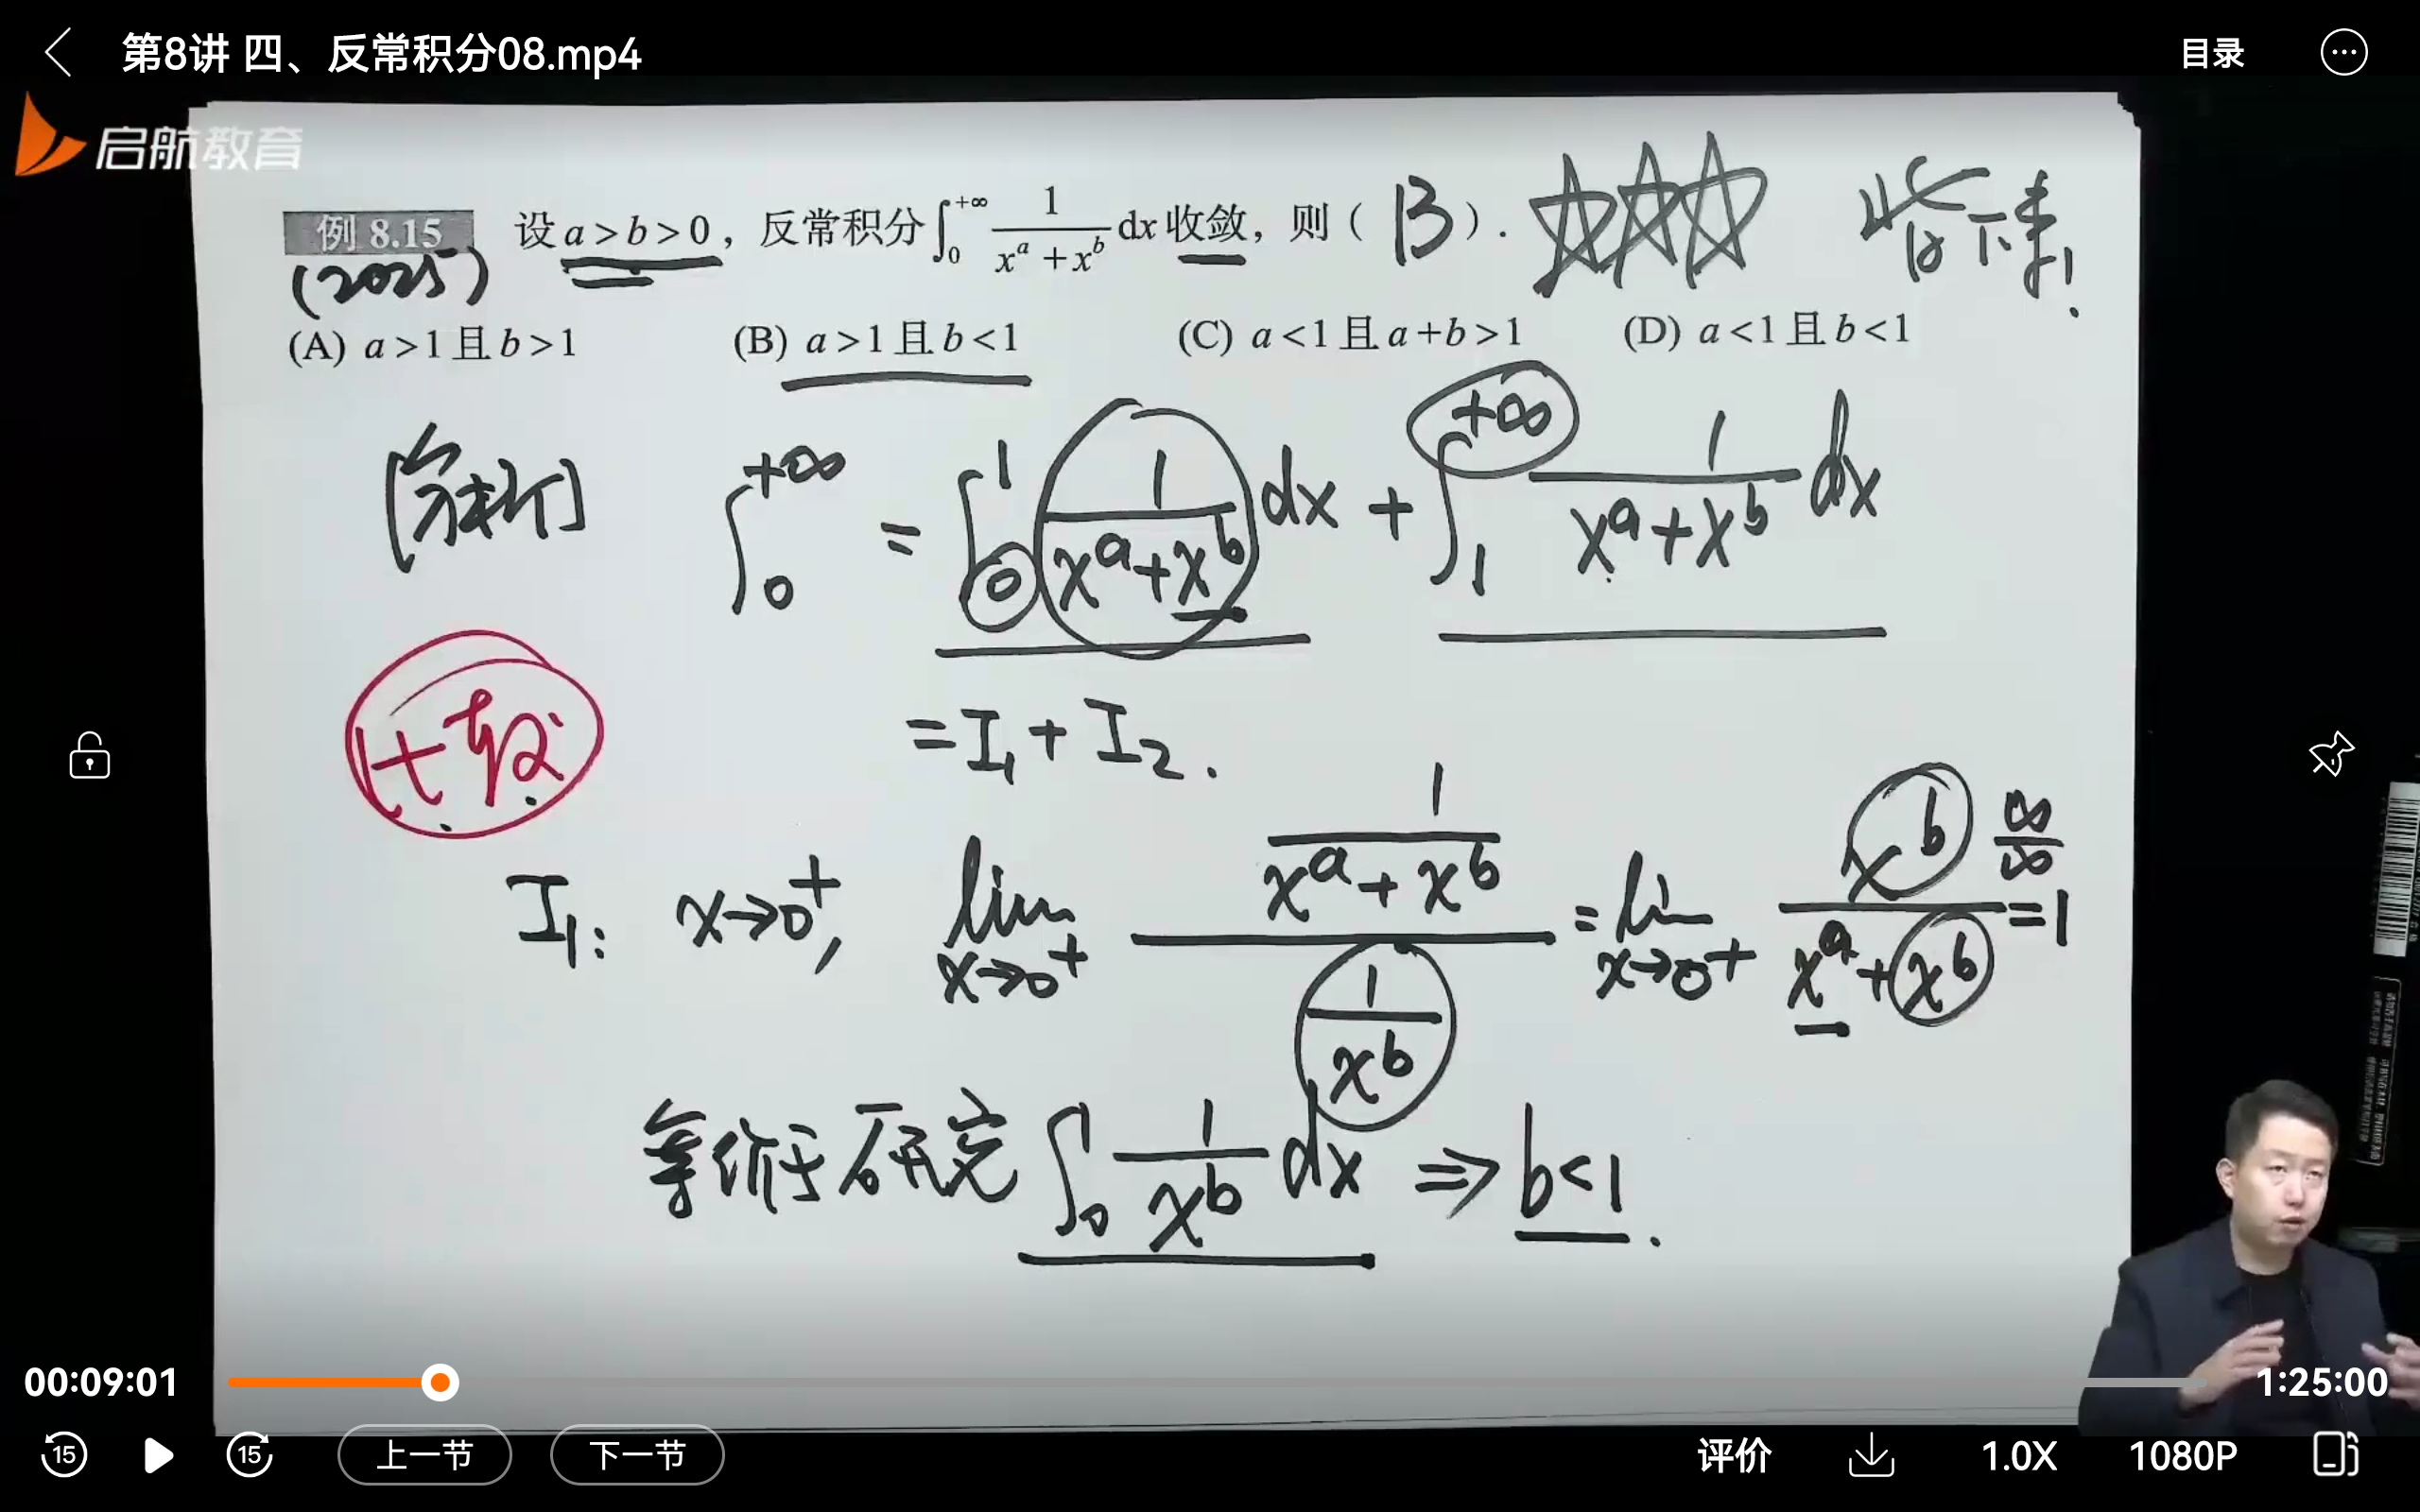 第8讲 四、反常积分08.mp4
目录
启航教育
例 8.15 设 a > b > 0，反常积分 ∫₀^{+∞} 1/(x^a + x^b) dx 收敛，则（ B ）. ☆☆☆ 背下来!
(2025)
(A) a > 1 且 b > 1 (B) a > 1 且 b < 1 (C) a < 1 且 a + b > 1 (D) a < 1 且 b < 1
[分析] ∫₀^{+∞} = ∫₀^1 1/(x^a + x^b) dx + ∫₁^{+∞} 1/(x^a + x^b) dx
比较
= I₁ + I₂.
I₁: x→0⁺, lim_{x→0⁺} (1/(x^a + x^b))/(1/x^b) = lim_{x→0⁺} x^b/(x^a + x^b) = 1
∞/∞
等价于研究 ∫₀^1 1/x^b dx ⇒ b<1.
00:09:01
1:25:00
15
15
上一节
下一节
评价
1.0X
1080P